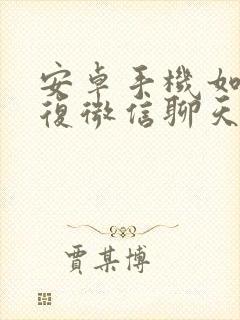 安卓手機如
復微信聊天
賈某博